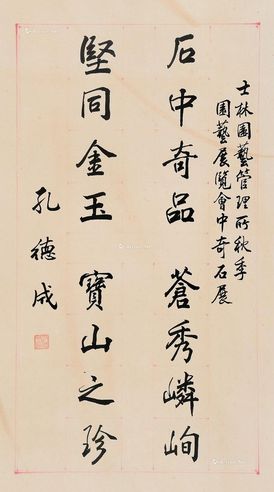 士林園藝管理所秋季
園藝展覽會中奇石展
石中奇品 蒼秀嶙峋
堅同金玉 寶山之珍
孔德成